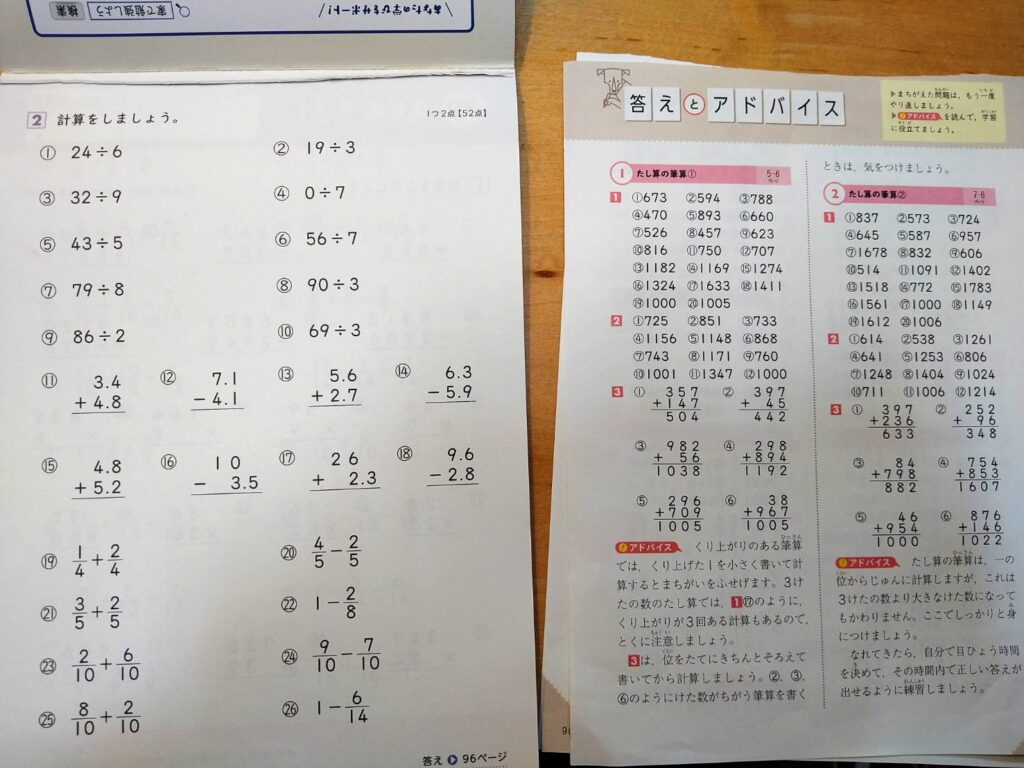 あなたの学びをサポート!
家で勉強しよう 検索
2 計算をしましょう。 1つ2点【52点】
① 24÷6 ② 19÷3
③ 32÷9 ④ 0÷7
⑤ 43÷5 ⑥ 56÷7
⑦ 79÷8 ⑧ 90÷3
⑨ 86÷2 ⑩ 69÷3
⑪ 3.4 ⑫ 7.1 ⑬ 5.6 ⑭ 6.3
+4.8 -4.1 +2.7 -5.9
⑮ 4.8 ⑯ 10 ⑰ 26 ⑱ 9.6
+5.2 - 3.5 + 2.3 -2.8
⑲ 1/4+2/4 ⑳ 4/5-2/5
㉑ 3/5+2/5 ㉒ 1-2/8
㉓ 2/10+6/10 ㉔ 9/10-7/10
㉕ 8/10+2/10 ㉖ 1-6/14
答え 96ページ
答えとアドバイス
▶まちがえた問題は、もう一度
やり直しましょう。
▶アドバイスを読んで、学習
に役立てましょう。
1 たし算の筆算① 5-6ページ
1 ①673 ②594 ③788
④470 ⑤893 ⑥660
⑦526 ⑧457 ⑨623
⑩816 ⑪750 ⑫707
⑬1182 ⑭1169 ⑮1274
⑯1324 ⑰1633 ⑱1411
⑲1000 ⑳1005
2 ①725 ②851 ③733
④1156 ⑤1148 ⑥868
⑦743 ⑧1171 ⑨760
⑩1001 ⑪1347 ⑫1000
3 ① 357 ② 397
+147 + 45
504 442
③ 982 ④ 298
+ 56 +894
1038 1192
⑤ 296 ⑥ 38
+709 +967
1005 1005
アドバイス くり上がりのある筆算
では、くり上げた1を小さく書いて計
算するとまちがいをふせげます。3け
たの数のたし算では、1⑰のように、
くり上がりが3回ある計算もあるので、
とくに注意しましょう。
3は、位をたてにきちんとそろえて
書いてから計算しましょう。②、③、
⑥のようにけた数がちがう筆算を書く
ときは、気をつけましょう。
2 たし算の筆算② 7-8ページ
1 ①837 ②573 ③724
④645 ⑤587 ⑥957
⑦1678 ⑧832 ⑨606
⑩514 ⑪1091 ⑫1402
⑬1518 ⑭772 ⑮1783
⑯1561 ⑰1000 ⑱1149
⑲1612 ⑳1006
2 ①614 ②538 ③1261
④641 ⑤1253 ⑥806
⑦1248 ⑧1404 ⑨1024
⑩711 ⑪1006 ⑫1214
3 ① 397 ② 252
+236 + 96
633 348
③ 84 ④ 754
+798 +853
882 1607
⑤ 46 ⑥ 876
+954 +146
1000 1022
アドバイス たし算の筆算は、一の
位からじゅんに計算しますが、これは
3けたの数より大きなけた数になって
もかわりません。ここでしっかりと身
につけましょう。
なれてきたら、自分で目ひょう時間
を決めて、その時間内で正しい答えが
出せるように練習しましょう。